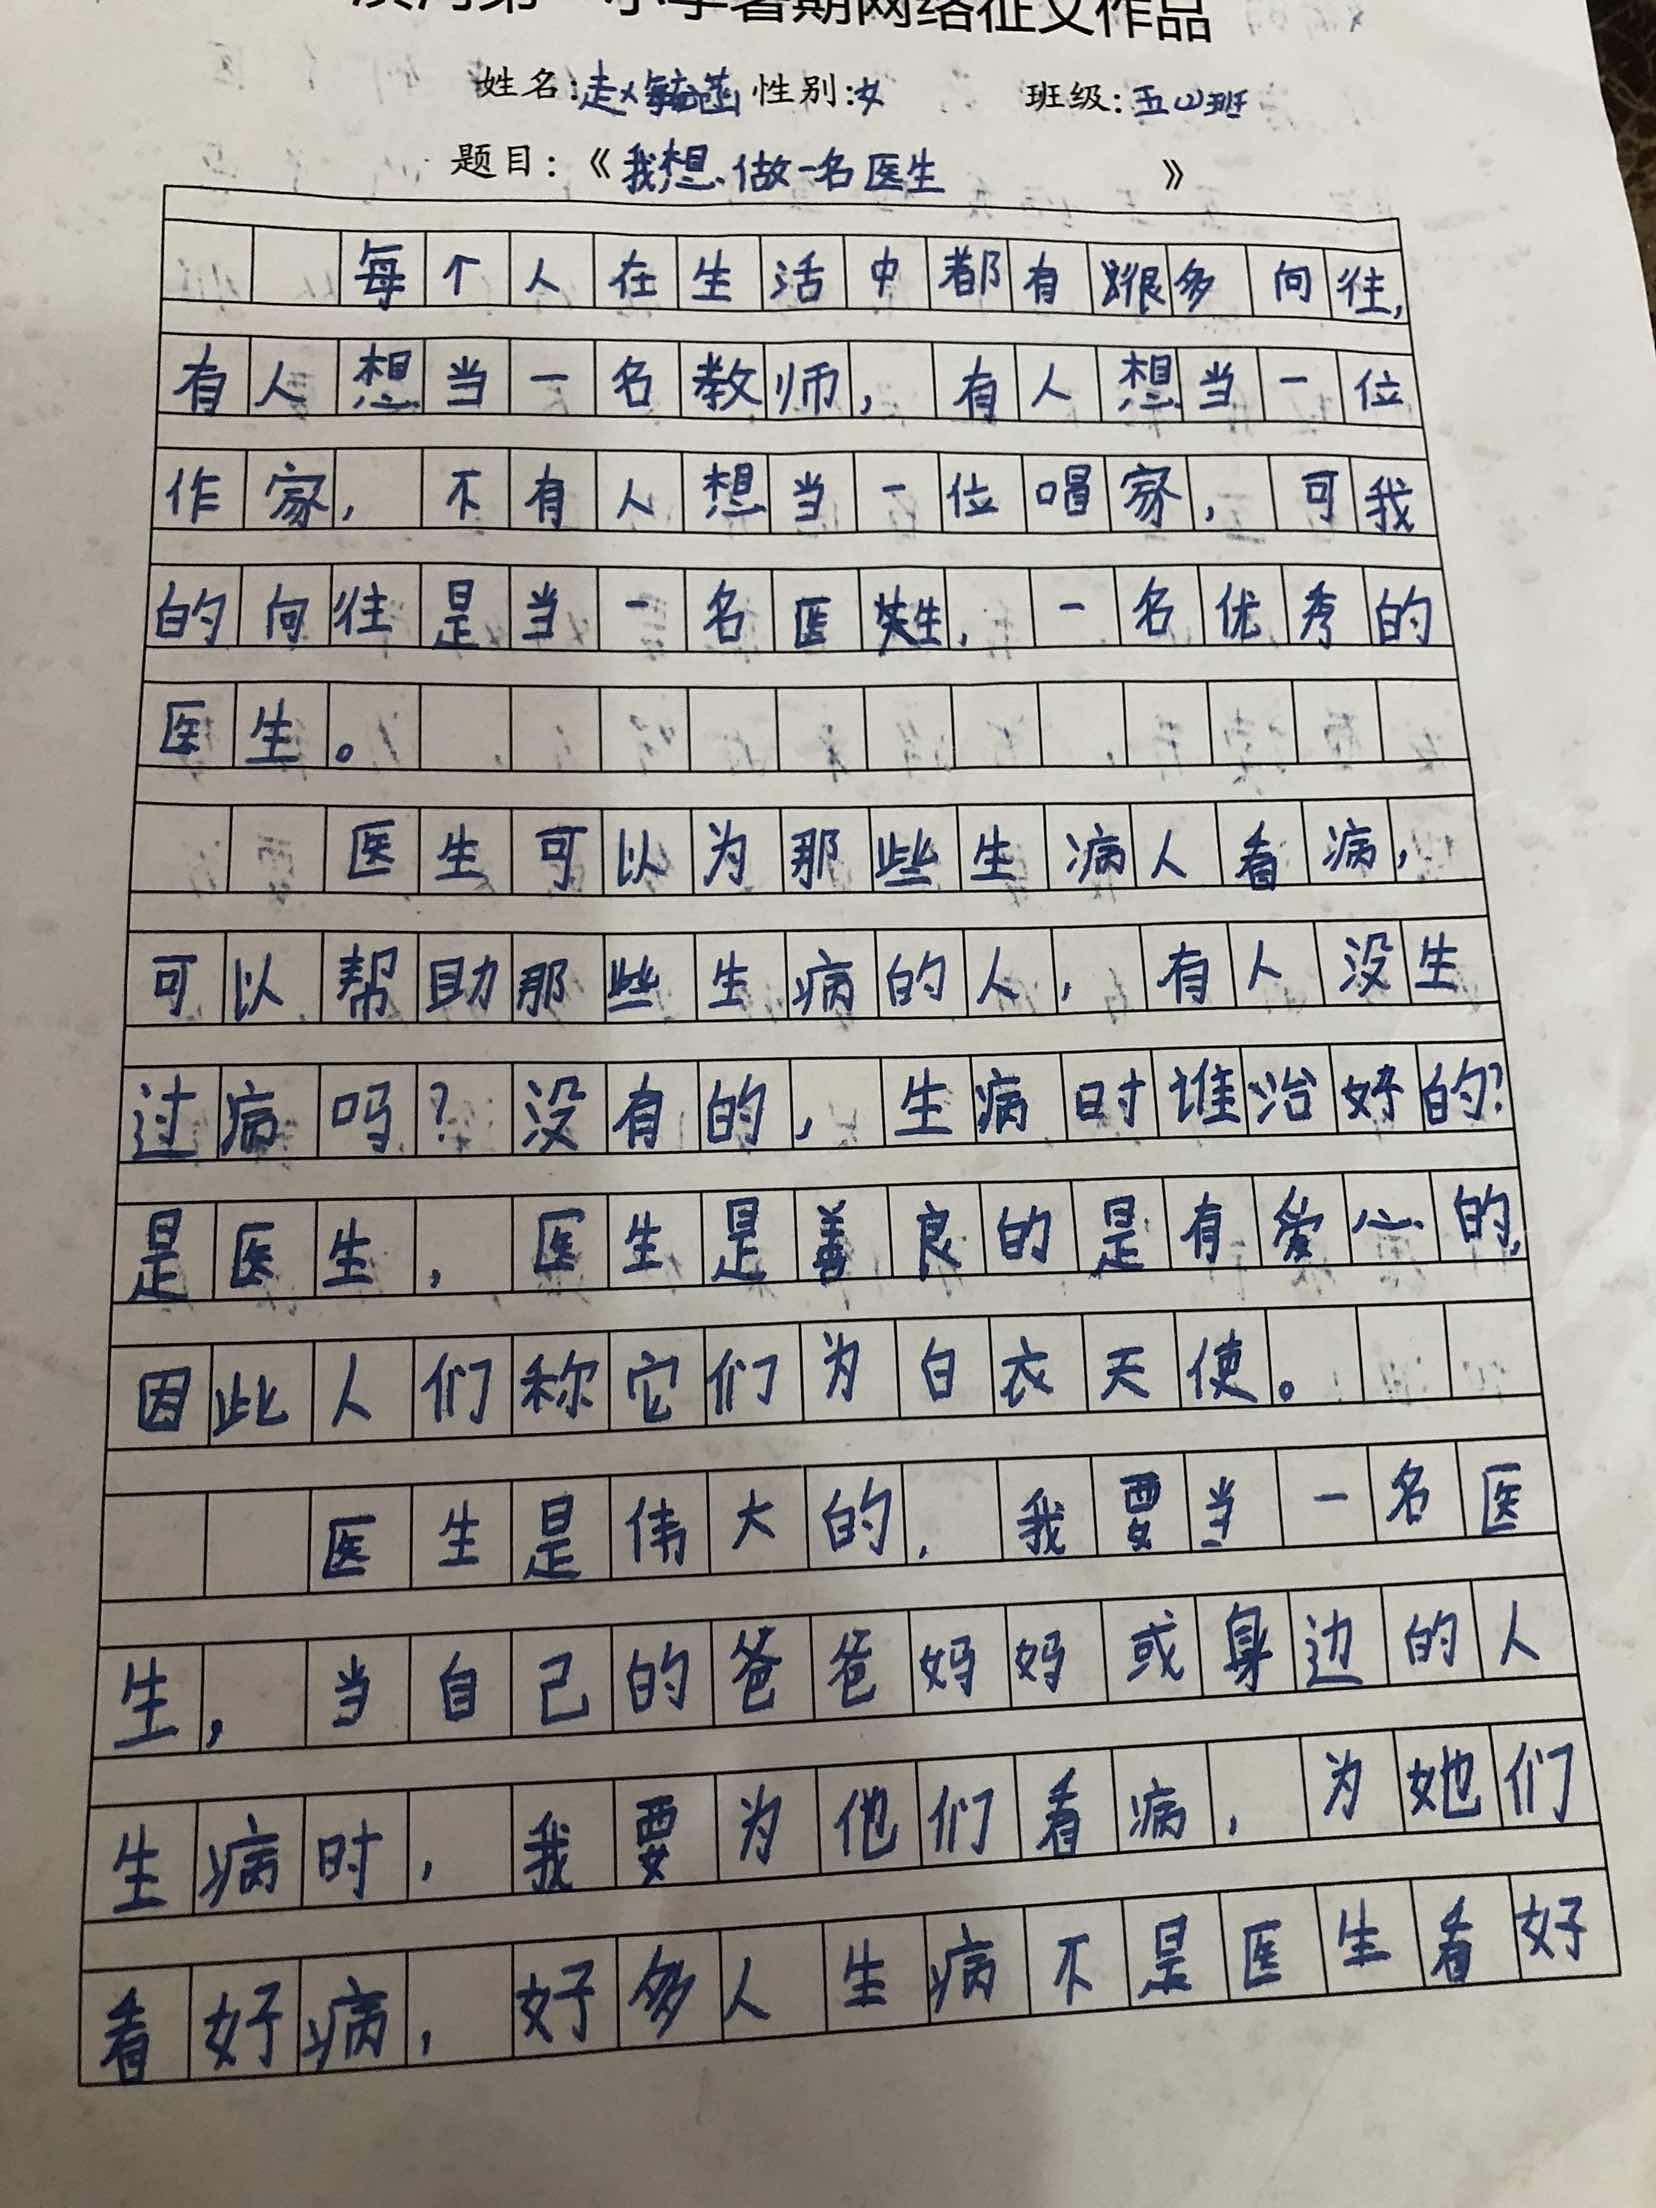 小学暑期网络征文作品
姓名:赵毓菡 性别:女 班级:五(2)班
题目:《我想做一名医生》
每个人在生活中都有很多向往,
有人想当一名教师,有人想当一位
作家,不有人想当一位唱家,可我
的向往是当一名医生,一名优秀的
医生。
医生可以为那些生病人看病,
可以帮助那些生病的人,有人没生
过病吗?没有的,生病时谁治好的?
是医生,医生是善良的是有爱心的,
因此人们称它们为白衣天使。
医生是伟大的,我要当一名医
生,当自己的爸爸妈妈或身边的人
生病时,我要为他们看病,为她们
看好病,好多人生病不是医生看好